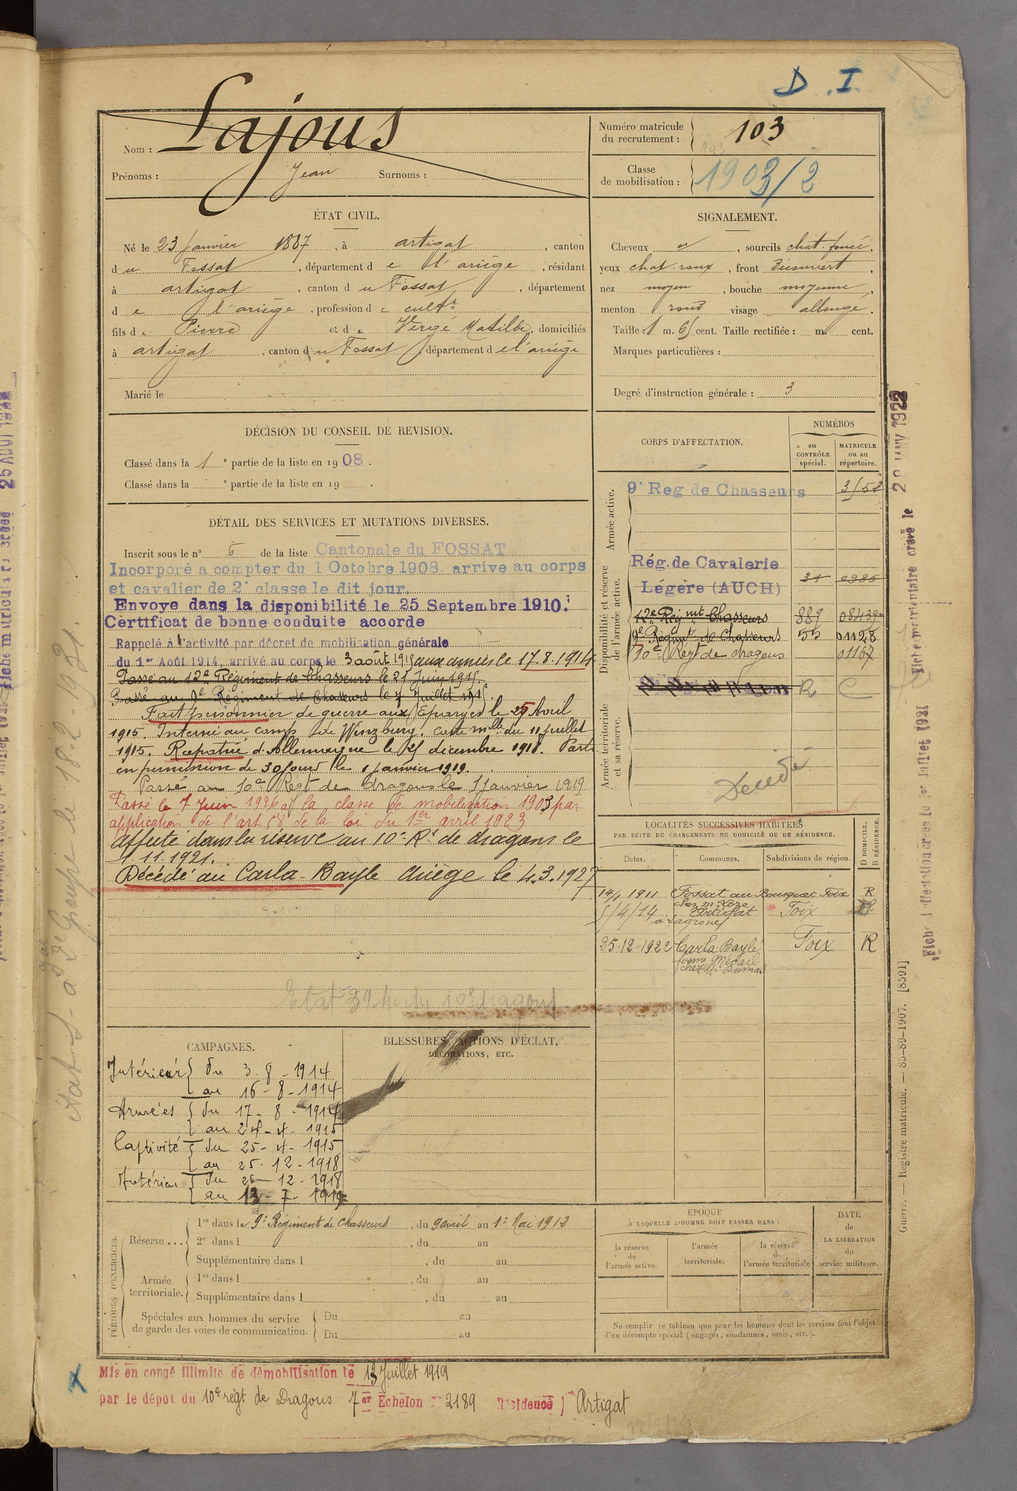 D. I.
Nom : Lajous
Prénoms : Jean Surnoms :
Numéro matricule du recrutement : 103
Classe de mobilisation : 1903/2
ÉTAT CIVIL.
Né le 23 Janvier 1887, à artigat, canton
du Fossat, département de l'ariège, résidant
à artigat, canton du Fossat, département
de l'ariège, profession de cultr
fils de Pierre et de Vergé Matilde, domiciliés
à artigat, canton du Fossat, département de l'ariège
Marié le
SIGNALEMENT.
Cheveux , sourcils chat. foncé,
yeux chat. roux, front Découvert,
nez moyen, bouche moyenne,
menton rond visage allongé.
Taille 1 m. 61 cent. Taille rectifiée : m. cent.
Marques particulières :
Degré d'instruction générale : 3
DÉCISION DU CONSEIL DE REVISION.
Classé dans la 1e partie de la liste en 1908.
Classé dans la e partie de la liste en 19 .
DÉTAIL DES SERVICES ET MUTATIONS DIVERSES.
Inscrit sous le n° 6 de la liste Cantonale du FOSSAT
Incorporé a compter du 1 Octobre 1908 arrive au corps
et cavalier de 2e classe le dit jour.
Envoye dans la disponibilité le 25 Septembre 1910.
Certificat de bonne conduite accorde
Rappelé à l'activité par décret de mobilisation générale
du 1er Août 1914, arrivé au corps le 3 août 1914 aux armées le 17.8.1914
Passé au 12e Régiment de Chasseurs le 21 Juin 1911.
Passé au 9e Régiment de Chasseurs le 7 Juillet 1911
Fait prisonnier de guerre aux Eparges le 25 Avril
1915. Interné au camp de Winzburg. Carte melle du 11 juillet
1915. Rapatrié d'Allemagne le 25 décembre 1918. Parti
en permission de 30 jours le 1 janvier 1919.
Passé au 10e Regt de dragons le 1 Janvier 1919
Passé le 7 Juin 1926 à la classe de mobilisation 1903 par
application de l'art 58 de la loi du 1er avril 1923
affecté dans la réserve au 10e Rt de dragons le
1.11.1921.
Décédé au Carla-Bayle Ariège le 4.3.1927
Etat 39 du 10e dragons
CORPS D'AFFECTATION.
NUMÉROS
au CONTRÔLE spécial.
MATRICULE ou au répertoire.
Armée active.
9e Reg de Chasseurs
Disponibilité et réserve de l'armée active.
Rég. de Cavalerie
Légère (AUCH) 31
12e Régmt Chasseurs 889
9e Régmt de Chasseurs 55 01128
10e Regt de dragons 01167
R C
Armée territoriale et sa réserve.
Décédé
LOCALITÉS SUCCESSIVES HABITÉES
PAR SUITE DE CHANGEMENTS DE DOMICILE OU DE RÉSIDENCE.
Dates. Communes. Subdivisions de région. D DOMICILE. R RÉSIDENCE.
14/1 1911 Fossat au Bousquet Foix R
5/4/14 Artigat Foix
à Lagrone
25-12-1922 Carla-Bayle Foix R
CAMPAGNES.
Intérieur du 3-8-1914
au 16-8-1914
Armées du 17-8-1914
au 24-4-1915
Captivité du 25-4-1915
au 25-12-1918
Intérieur du 26-12-1918
au 13-7-1919
BLESSURES, ACTIONS D'ÉCLAT,
DÉCORATIONS, ETC.
PÉRIODES D'EXERCICES.
Réserve .... 1re dans le 9e Régiment de Chasseurs, du 9 avril au 1er Mai 1912
2e dans l , du au
Supplémentaire dans l , du au
Armée territoriale. 1re dans l , du au
Supplémentaire dans l , du au
Spéciales aux hommes du service de garde des voies de communication. Du au
Du au
ÉPOQUE
À LAQUELLE L'HOMME DOIT PASSER DANS :
la réserve de l'armée active.
l'armée territoriale.
la réserve de l'armée territoriale
DATE de LA LIBÉRATION du service militaire.
Ne remplir ce tableau que pour les hommes dont les services font l'objet
d'un décompte spécial (engagés, condamnés, omis, etc.).
Mis en congé illimité de démobilisation le 13 Juillet 1919
par le dépôt du 10e régt de Dragons 7er Echelon n° 2189 Résidence Artigat
Guerre. — Registre matricule. — 83-89-1907. [8591]
25 AOUT 1922